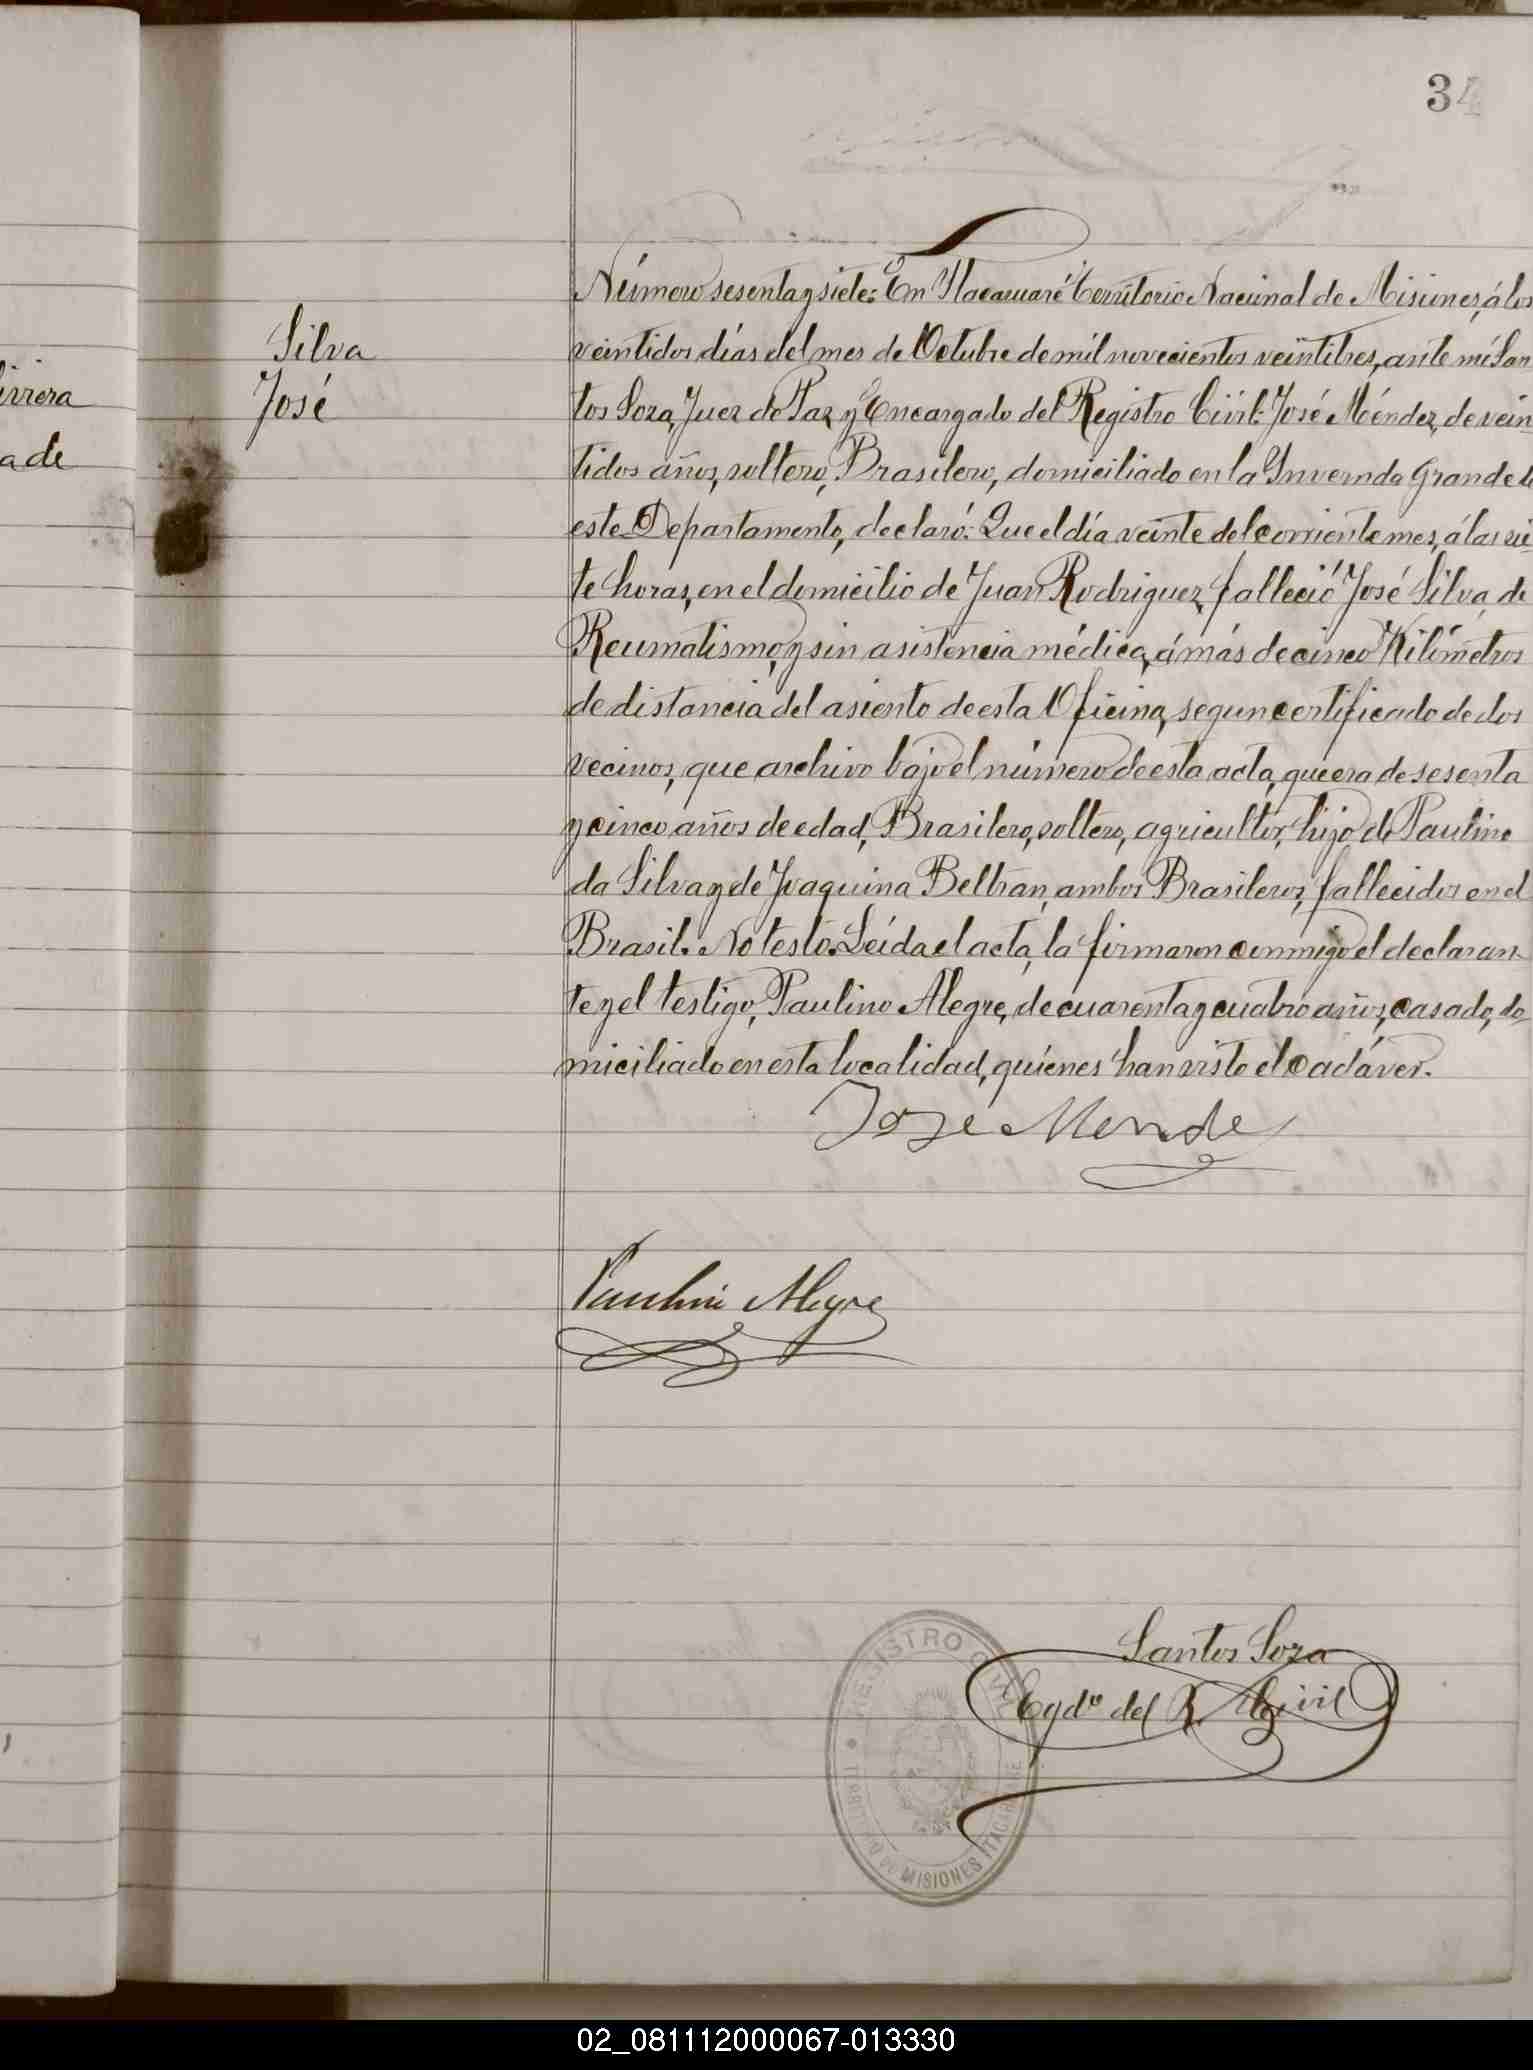 34
irrera
a de
Silva
José
Número sesenta y siete: En Itacaruaré Territorio Nacional de Misiones, á los
veintidos días del mes de Octubre de mil novecientos veintitres, ante mí San
tos Soza, Juez de Paz y Encargado del Registro Civil: José Méndez, de vein
tidos años, soltero, Brasilero, domiciliado en la Invernda Grande de
este Departamento, declaró: Que el día veinte del corriente mes, á las sie
te horas, en el domicilio de Juan Rodriguez, falleció José Silva, de
Reumatismo, y sin asistencia médica, á más de cinco Kilómetros
de distancia del asiento de esta Oficina, segun certificado de dos
vecinos, que archivo bajo el número de esta acta, que era de sesenta
y cinco años de edad, Brasilero, soltero, agricultor, hijo de Paulino
da Silva y de Joaquina Beltran, ambos Brasileros, fallecidos en el
Brasil. No testó. Leída el acta, la firmaron conmigo el declaran
te y el testigo, Paulino Alegre, de cuarenta y cuatro años, casado, do
miciliado en esta localidad, quienes han visto el cadáver.
José Mende
Paulino Alegre
Santos Soza
Egdo del R. Civil
REGISTRO CIVIL
TERRITORIO DE MISIONES ITACARUARE
02_081112000067-013330